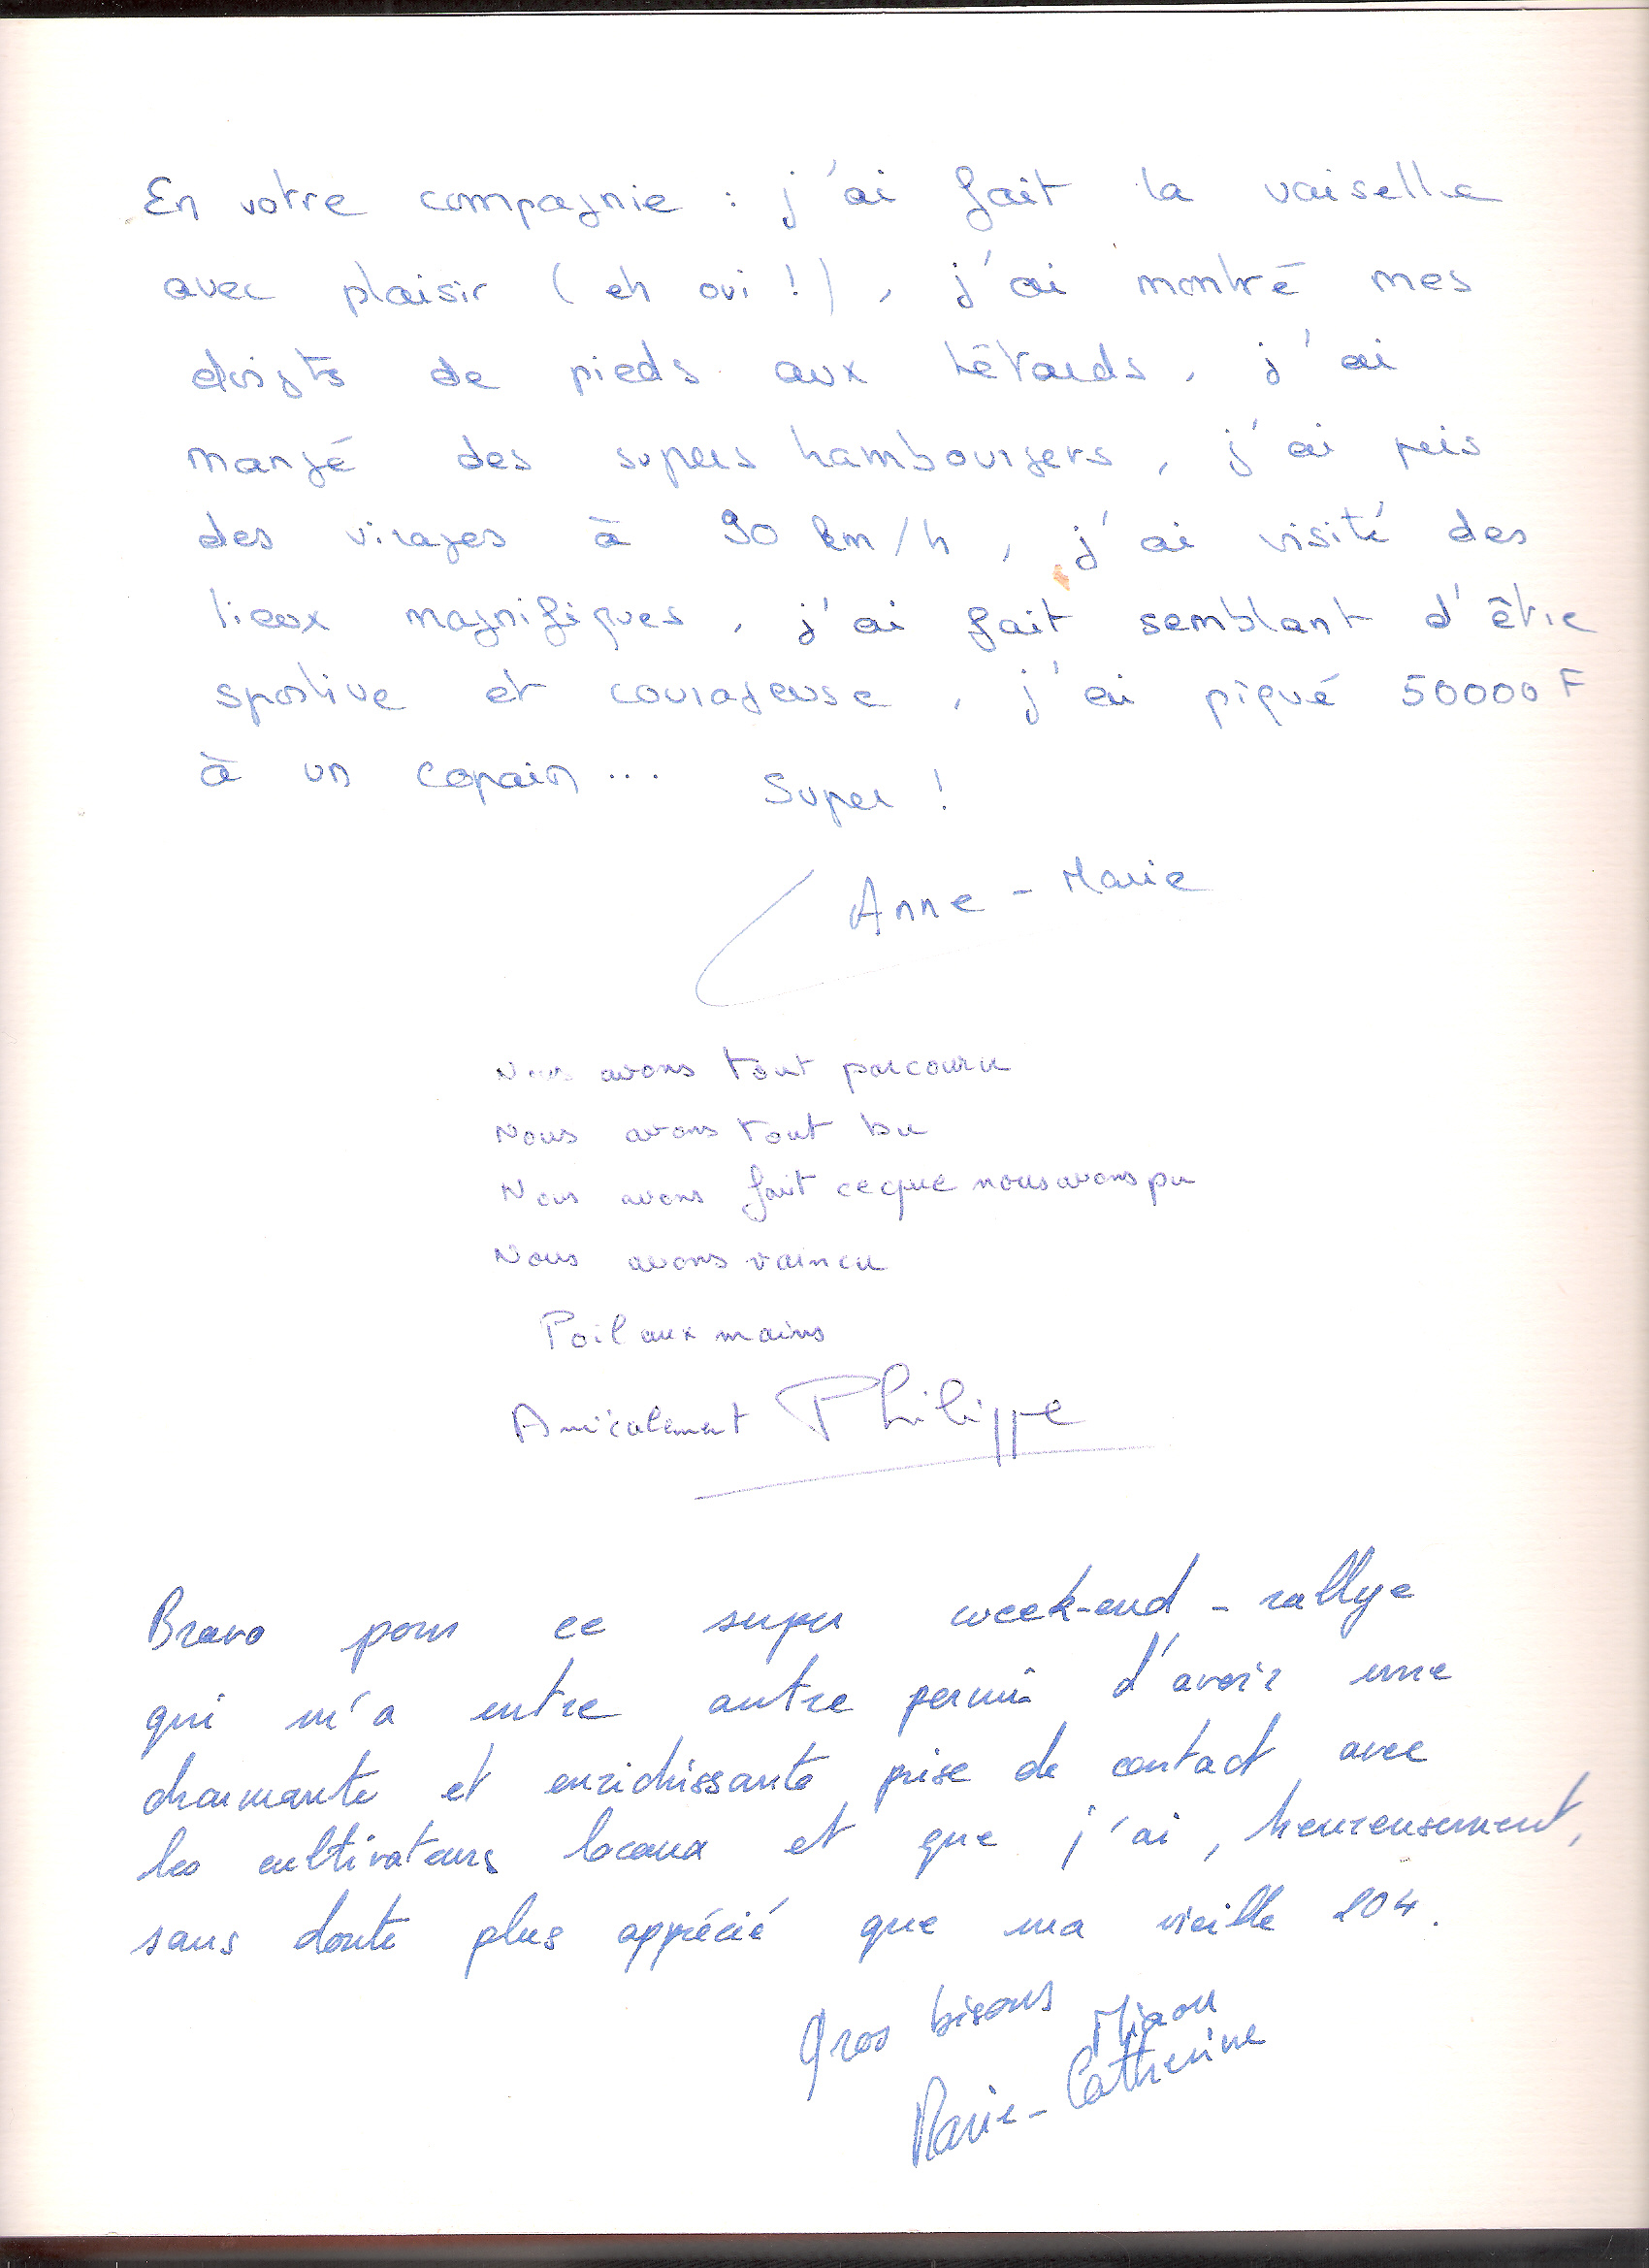 En votre compagnie : j'ai fait la vaiselle
avec plaisir ( eh oui ! ) , j'ai montré mes
doigts de pieds aux têtards , j'ai
mangé des supers hambourgers , j'ai pris
des virages à 90 km/h , j'ai visité des
lieux magnifiques , j'ai fait semblant d'être
sportive et courageuse , j'ai piqué 50000 F
à un copain ... Super !
Anne - Marie
Nous avons tout parcouru
Nous avons tout bu
Nous avons fait ce que nous avons pu
Nous avons vaincu
Poil aux mains
Amicalement Philippe
Bravo pour ce super week-end - rallye
qui m'a entre autre permis d'avoir une
charmante et enrichissante prise de contact avec
les cultivateurs locaux et que j'ai , heureusement,
sans doute plus apprécié que ma vieille 204.
Gros bisous Miaou
Marie - Catherine